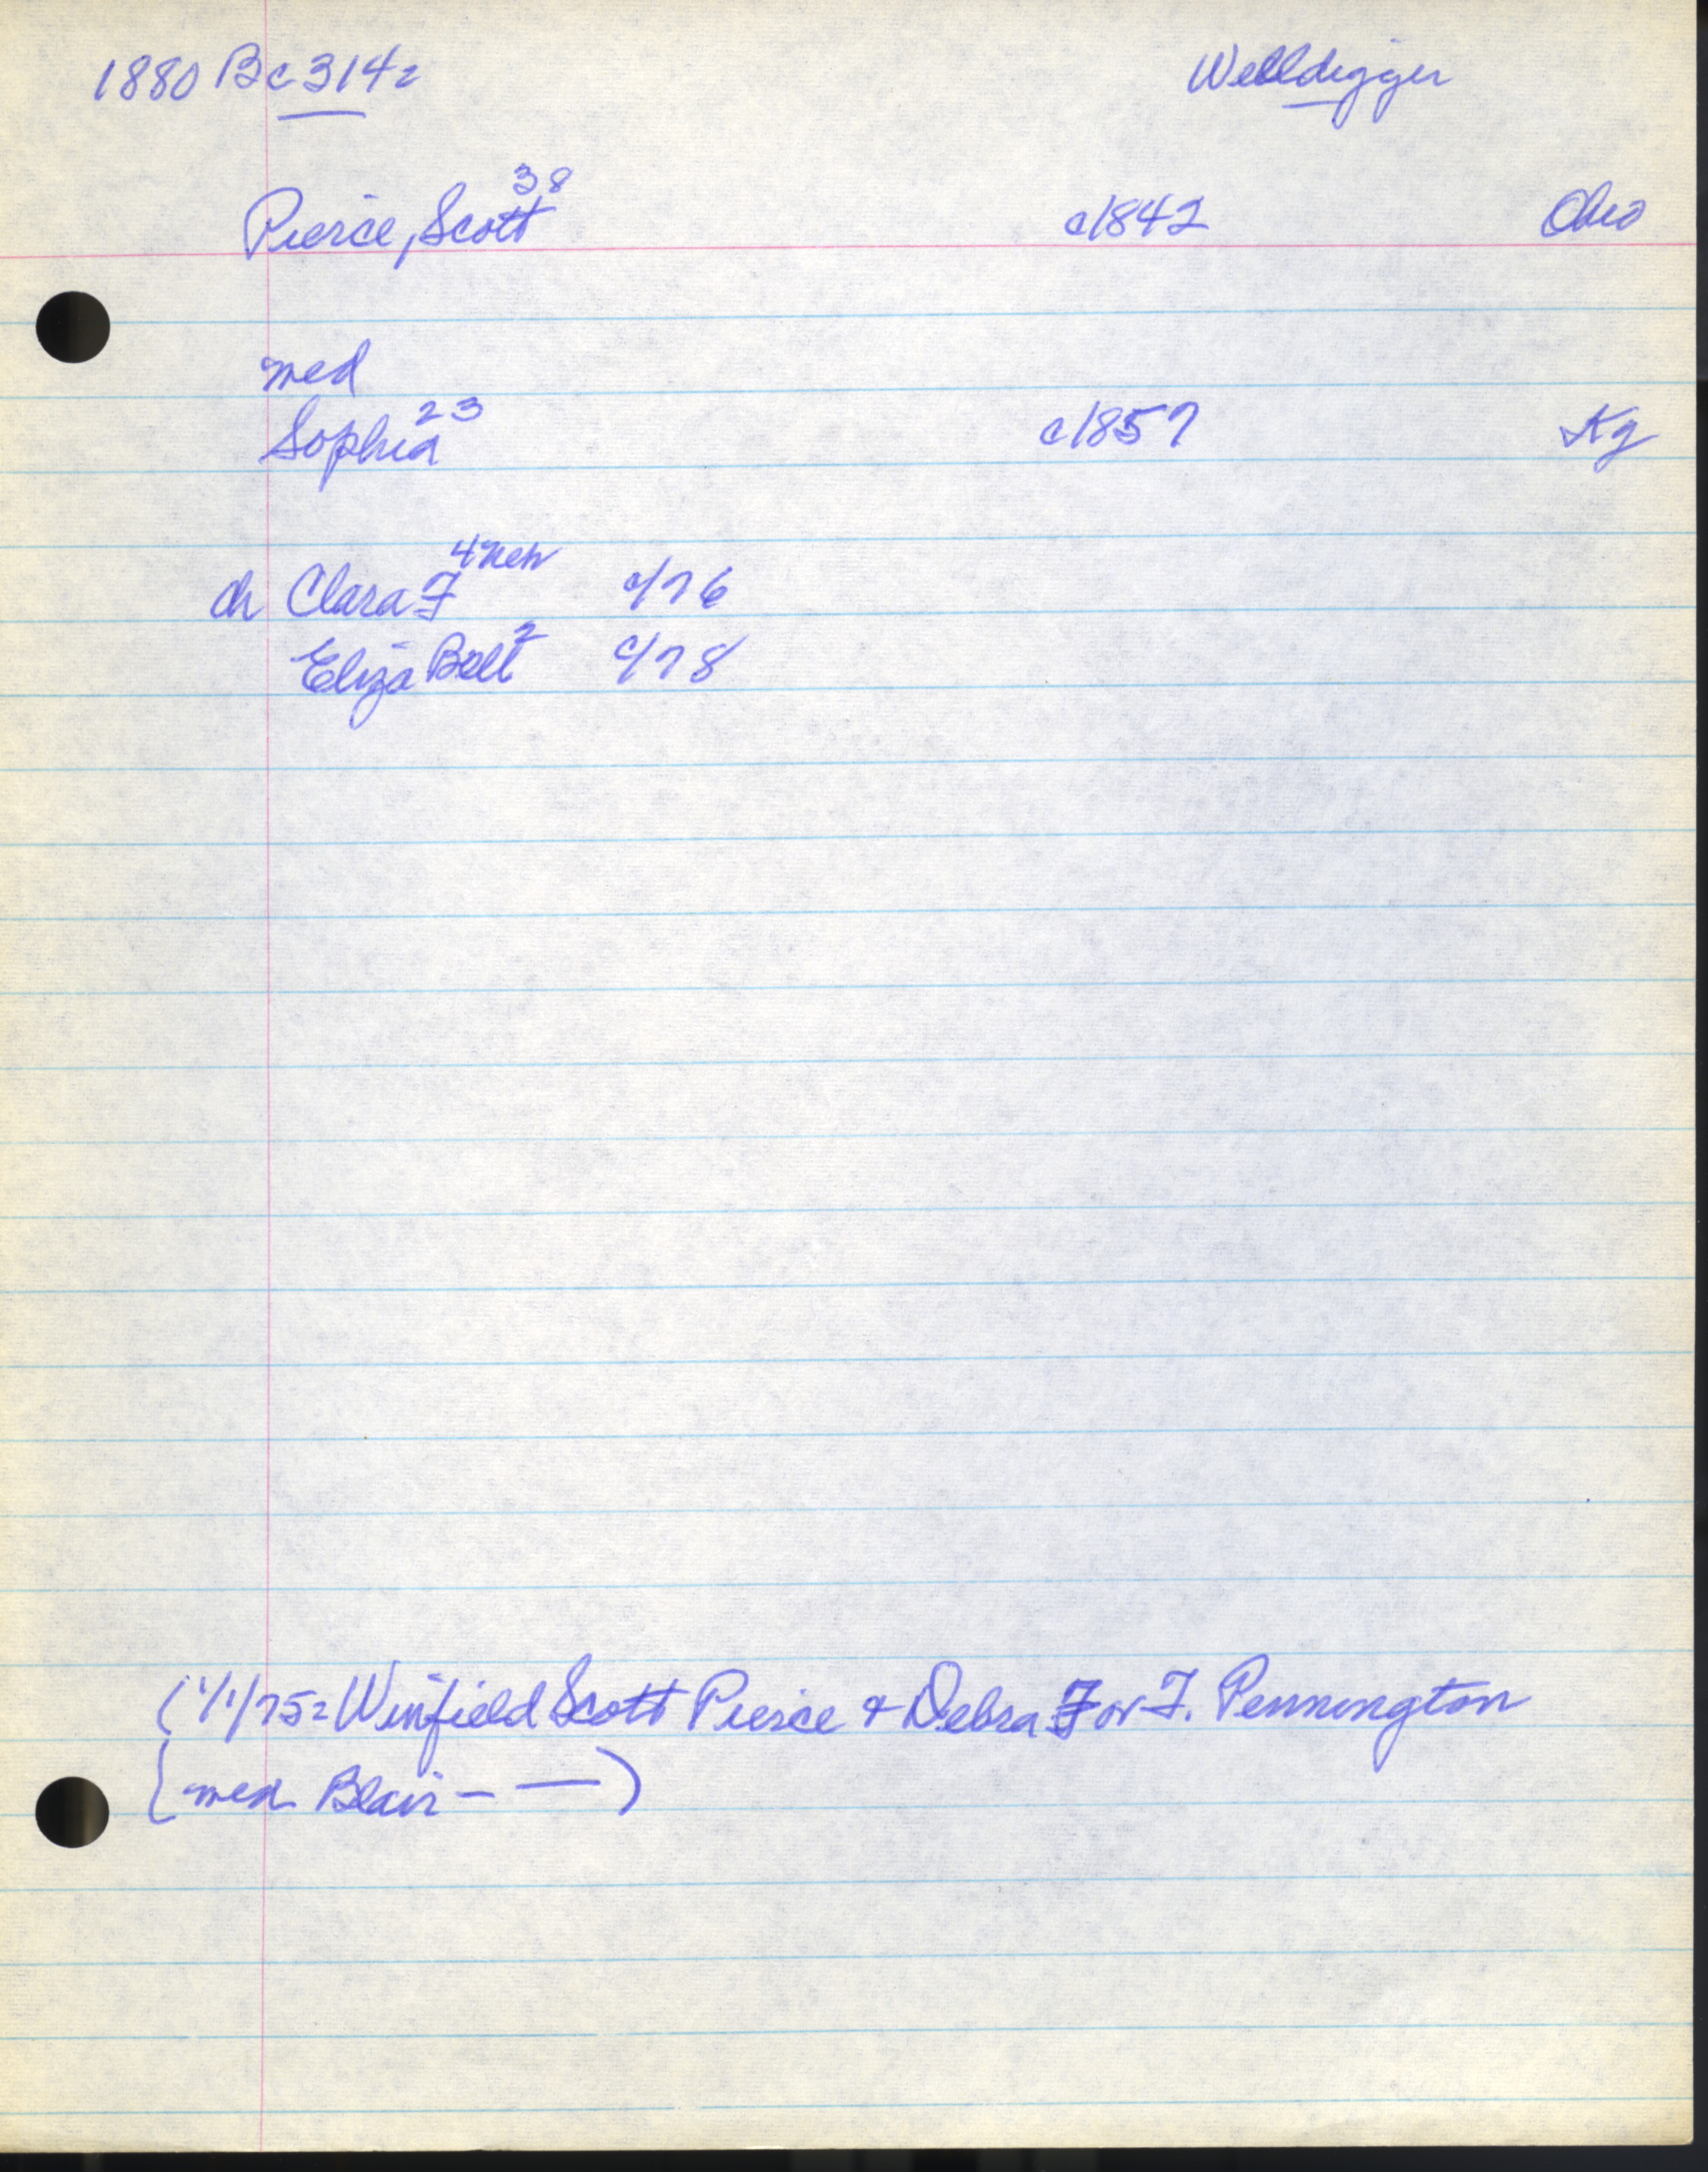 1880 Bc 314z Welldigger
Pierce, Scott 38 c1842 Ohio
med
Sophia 23 c1857 Ky
ch Clara F 4 c/76
Eliza Bell 2 c/78
(1/1/75= Winfield Scott Pierce & Debra F or T. Pennington
(med Blair - —)